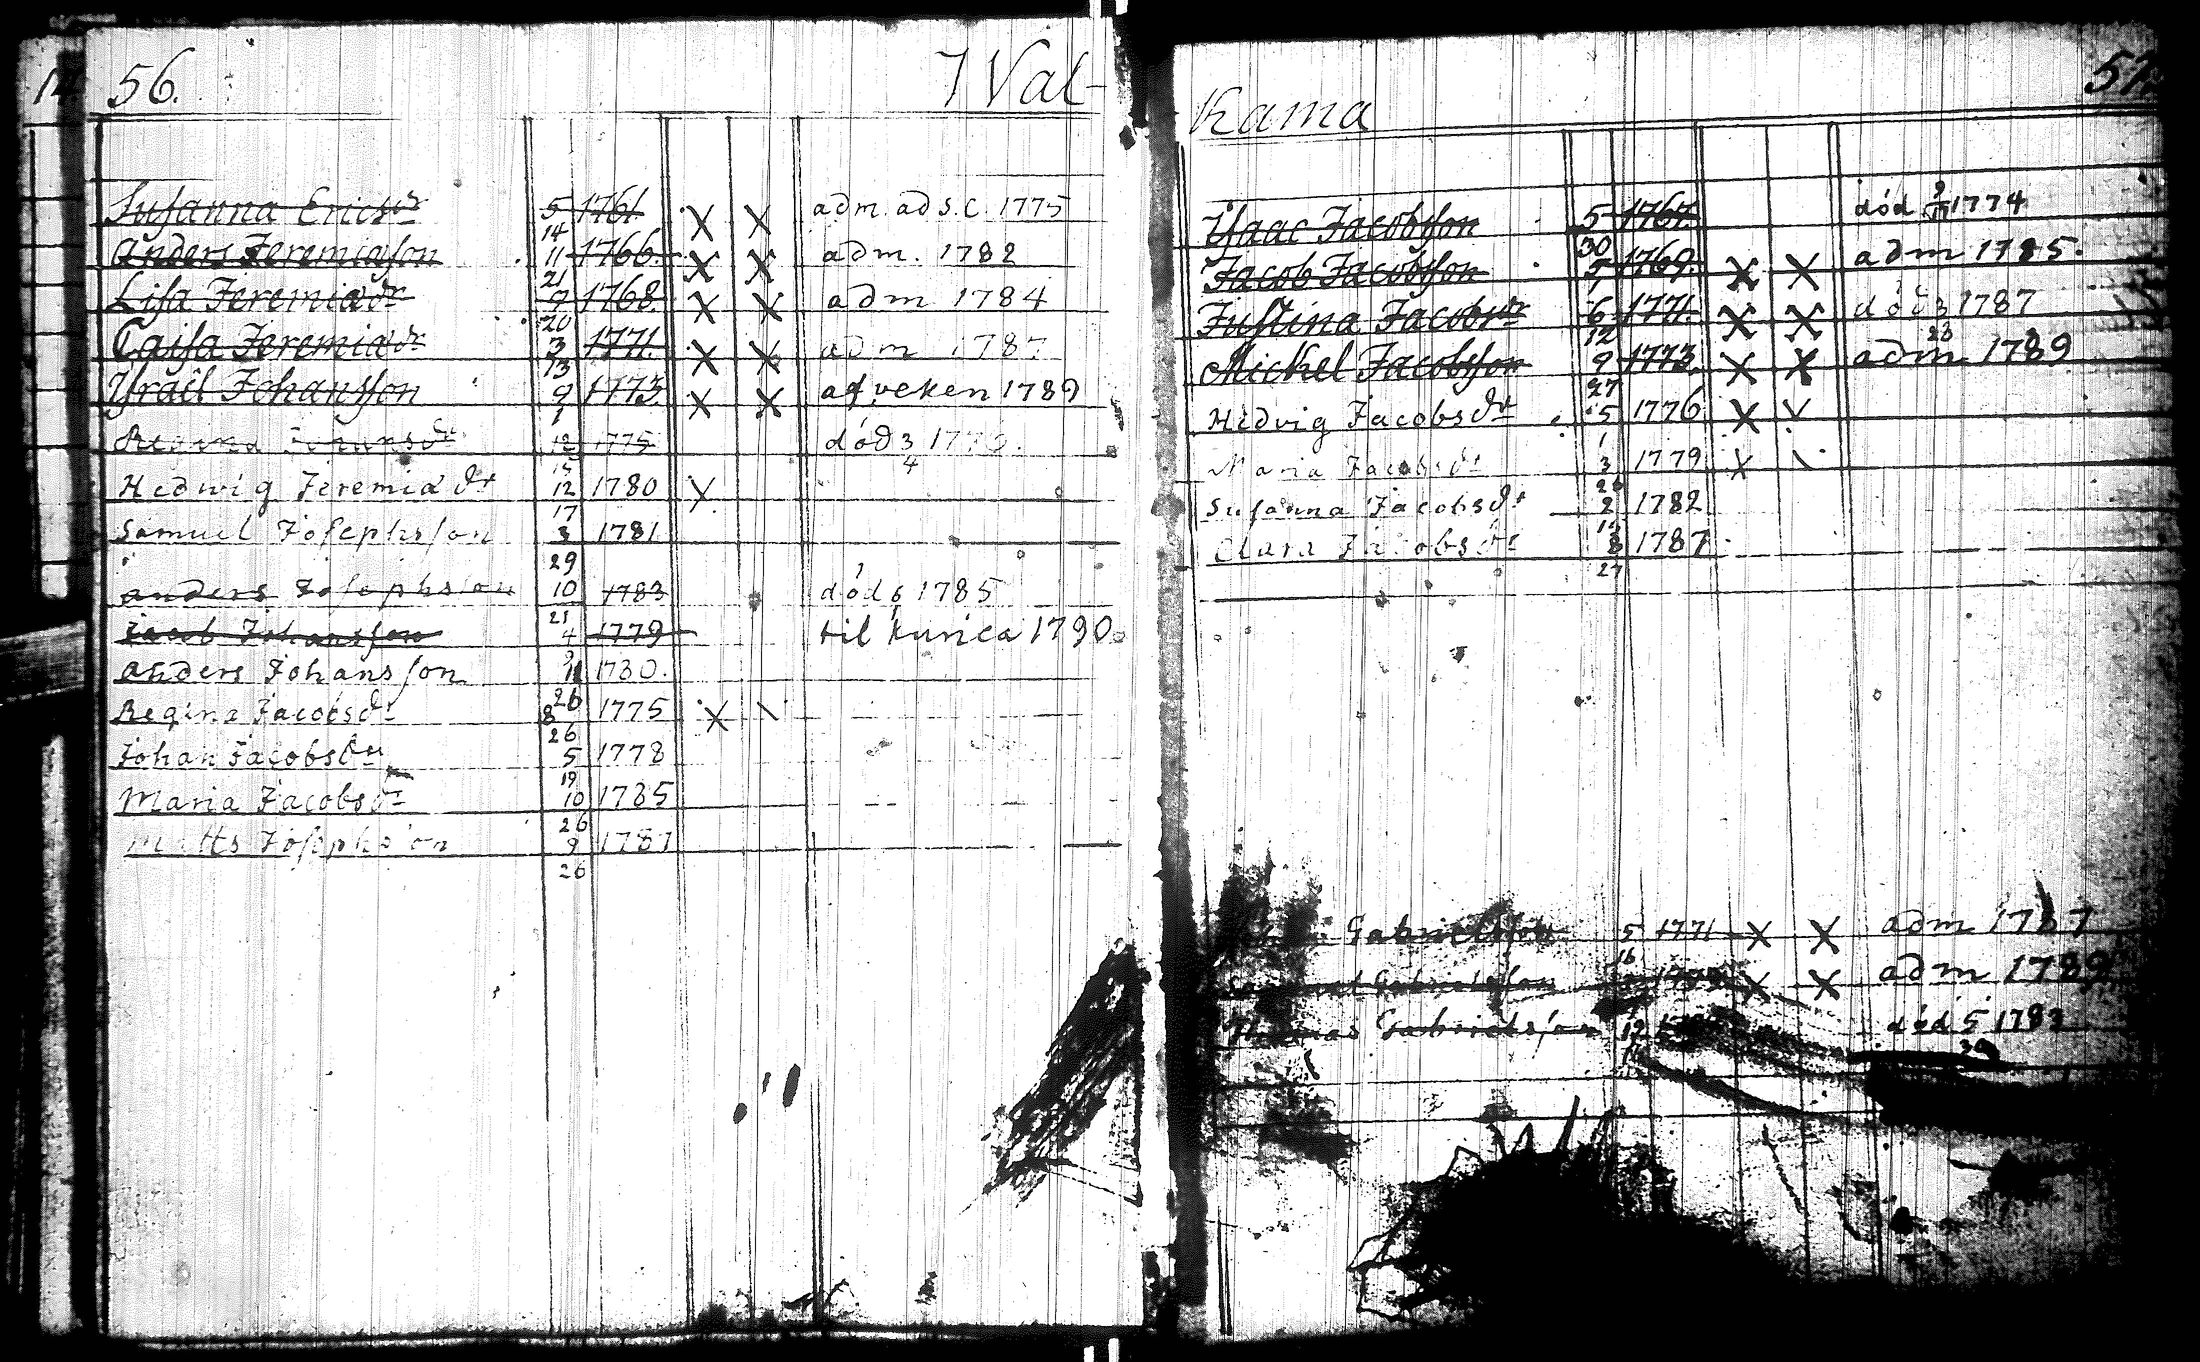 56. I Val-
Susanna Ericsdr 5/14 1761. X X adm. ad s.c 1775
Anders Jeremiasson 11/21 1766. X X adm. 1782
Lisa Jeremiædr 9/20 1768. X X adm 1784
Caisa Jeremiædr 3/13 1771. X X adm 1787
Ysrael Johansson 9/1 1773. X X afveken 1789
Regina Johansdr 12/15 1775 död 3/4 1776.
Hedwig Jeremiædr 12/17 1780 X
Samuel Josephsson 3/29 1781
Anders Josephsson 10/21 1783 död 6 1785
Jacob Johansson 4/9 1779 til Kurica 1790
Anders Johansson 11/26 1780.
Regina Jacobsdr 8/26 1775 X
Johan Jacobsdr 5/19 1778
Maria Jacobsdr 10/26 1785
Matts Josephsson 9/26 1787
kama 57.
Ysaac Jacobsson 5/30 1767. död 9/17 1774
Jacob Jacobsson 5/1 1769. X X adm 1785.
Justina Jacobsdr 6/12 1771. X X död 3/23 1787
Mickel Jacobsson 9/27 1773. X X adm 1789
Hedvig Jacobsdr 5/1 1776 X
Maria Jacobsdr 3/26 1779 X
Susanna Jacobsdr 2/15 1782
Clara Jacobsdr 8/27 1787
Gabrielsson 5/16 1771 X X adm 1787
Gabrielsson X X adm 1789
Thomas Gabrielsson 12 död 5 1783